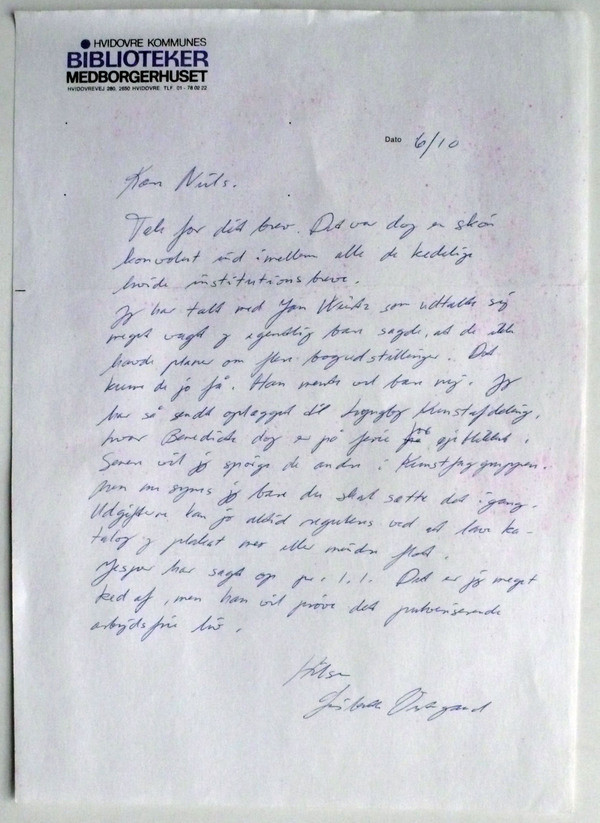 HVIDOVRE KOMMUNES
BIBLIOTEKER
MEDBORGERHUSET
HVIDOVREVEJ 280, 2650 HVIDOVRE TLF. 01 - 78 02 22
Dato 6/10
Kære Niels.
Tak for dit brev. Det var dog en skøn
konvolut ind imellem alle de kedelige
hvide institutionsbreve.
Jeg har talt med Jan som udtalte sig
meget vagt og egentlig bare sagde, at de ikke
havde planer om flere bogudstillinger. Det
kunne de jo få. Han mente vel bare nej. Jeg
har så sendt oplægget til Lyngby Kunstafdeling,
hvor Benedicte dog er på ferie
Senere vil jeg spørge de andre i Kunstfaggruppen.
Men nu synes jeg bare du skal sætte det i gang.
Udgifterne kan jo altid reguleres ved at lave ka-
talog og plakat mer eller mindre flot.
Jesper har sagt op pr. 1.1. Det er jeg meget
ked af, men han vil prøve det pulveriserende
arbejdsfrie liv.
Hilsen